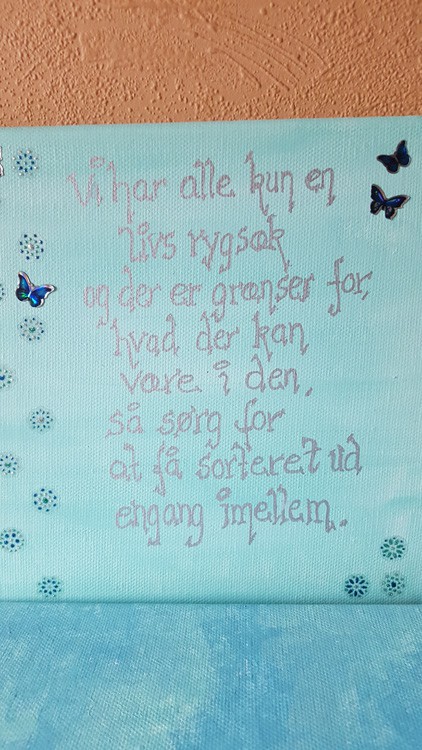 Vi har alle kun en
livs rygsæk
og der er grænser for,
hvad der kan
være i den,
så sørg for
at få sorteret ud
engang imellem.